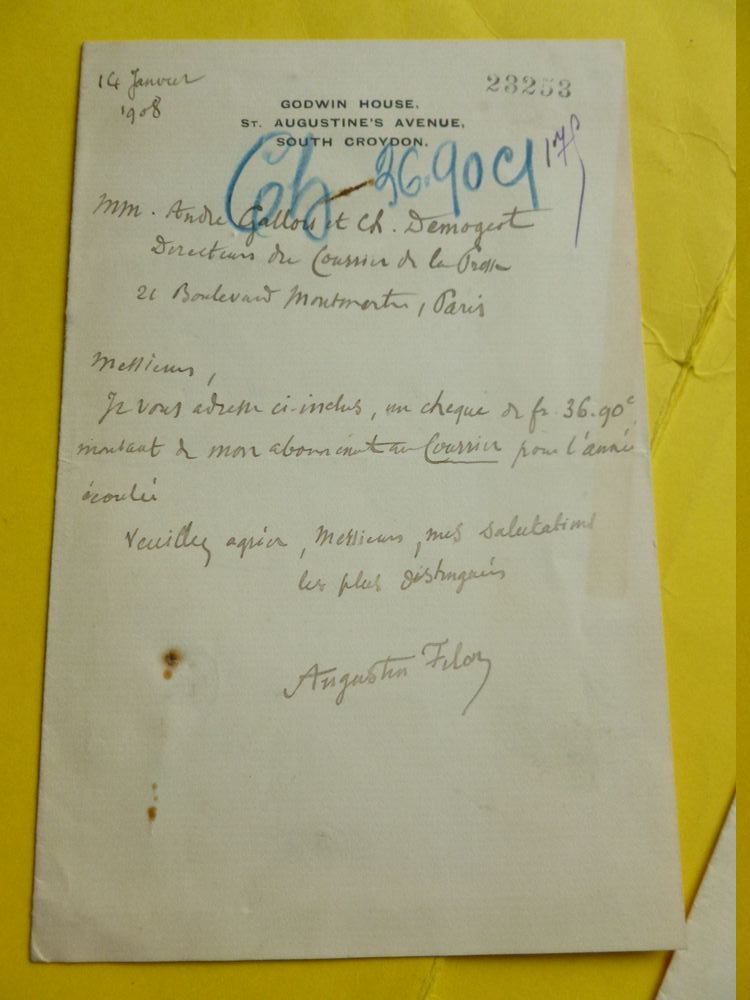 14 Janvier
1908
23253
GODWIN HOUSE,
ST. AUGUSTINE'S AVENUE,
SOUTH CROYDON.
Ch - 36.90 c
MM. André Gallois et Ch. Demogeot
Directeurs du Courrier de la Presse
21 Boulevard Montmartre, Paris
Messieurs,
Je vous adresse ci-inclus, un chèque de fr. 36.90c
montant de mon abonnement au Courrier pour l'année
écoulée
Veuillez agréer, Messieurs, mes salutations
les plus distinguées
Augustin Filon